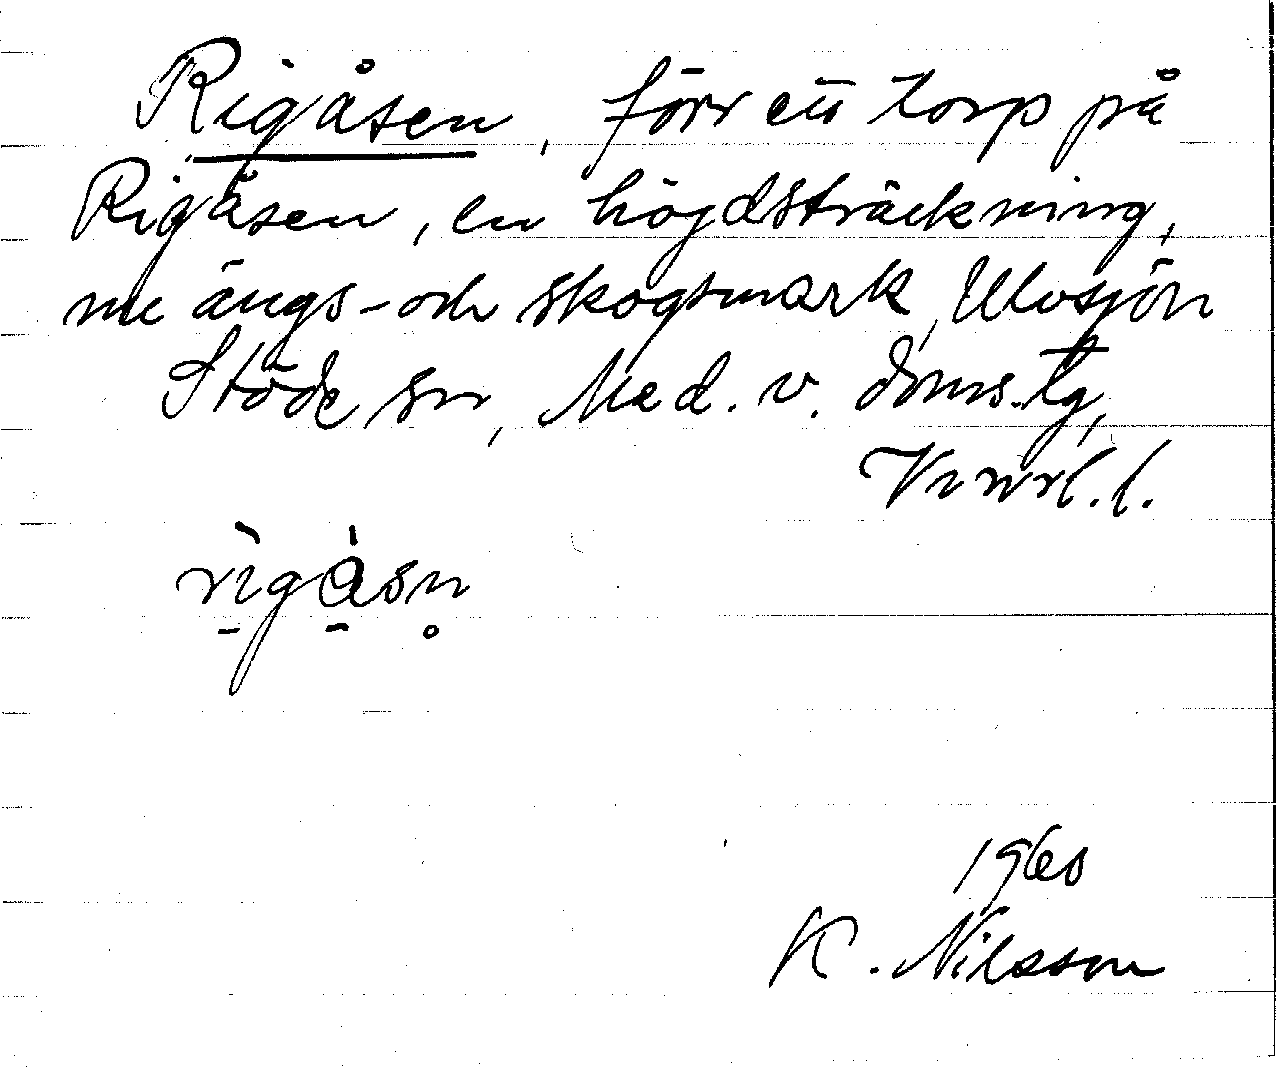 Rigåsen, förr ett torp på
Rigåsen, en höjdsträckning,
nu ängs- och skogsmark, Ulvsjön
Stöde sn, Med. v. doms.tg,
Vnrl. l.
rìgàsn
1960
K. Nilsson